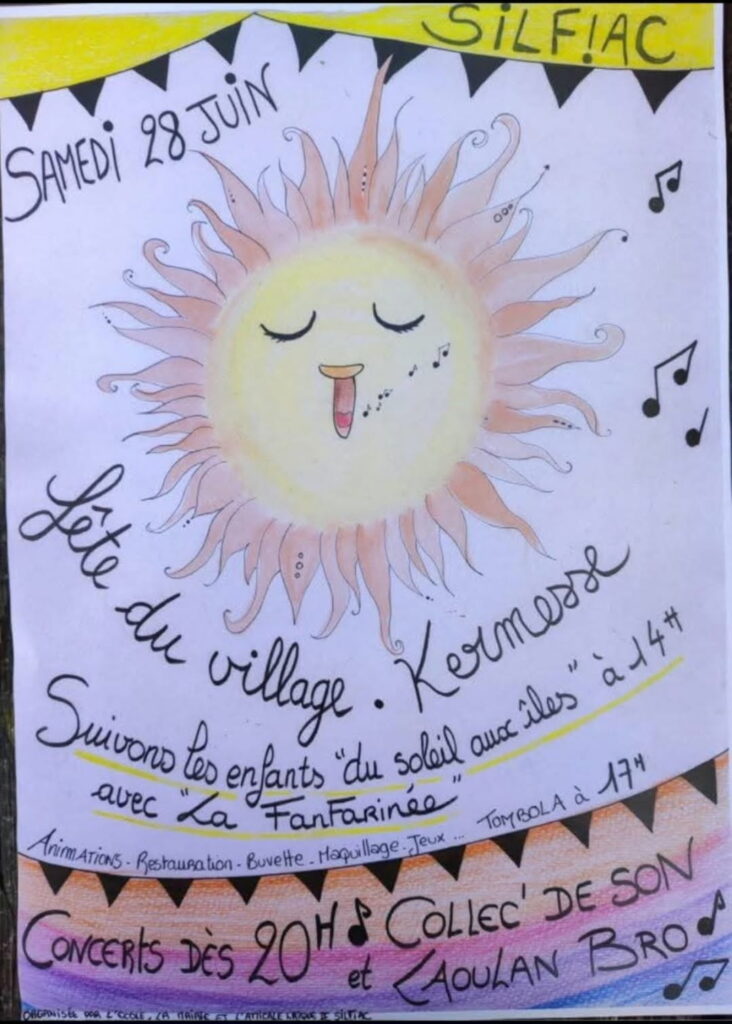 SILF!AC
SAMEDI 28 JUIN
fête du village . Kermesse
Suivons les enfants "du soleil aux îles" à 14H
avec "La FanFarinée"
ANIMATIONS - Restauration - Buvette - Maquillage - Jeux ... TOMBOLA à 17H
CONCERTS DÈS 20H COLLEC' DE SON
et LAOULAN BRO
ORGANISÉE PAR L'ECOLE, LA MAIRIE ET L'AMICALE LAIQUE DE SILFIAC